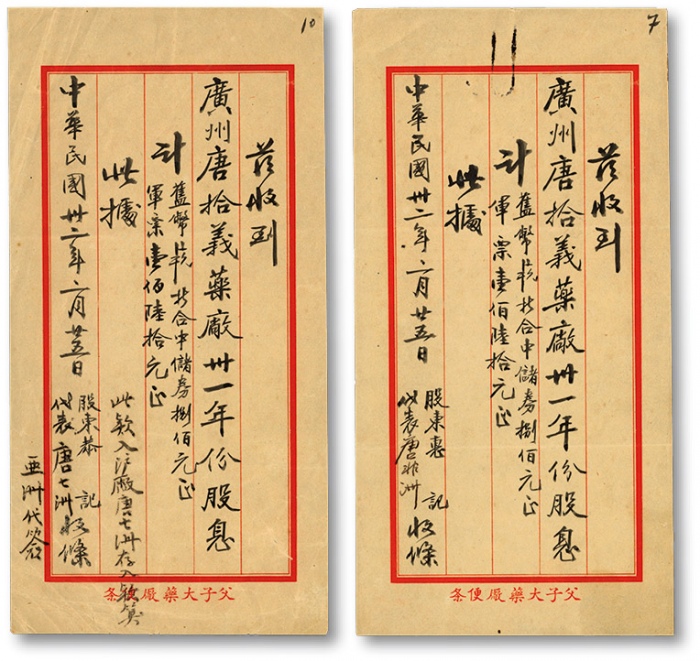 10
茲收到
廣州唐拾義藥廠卅一年份股息
計
舊幣折合中儲券捌佰元正
軍票壹佰陸拾元正
此據
此款入沪廠唐七洲存入款算
中華民國卅二年六月廿五日
股東恭記
代表唐七洲收條
亞洲代簽
父子大藥厰便条
7
茲收到
廣州唐拾義藥廠卅一年份股息
計
舊幣折合中儲券捌佰元正
軍票壹佰陸拾元正
此據
中華民國卅二年六月廿五日
股東惠記
代表唐非洲收條
父子大藥厰便条